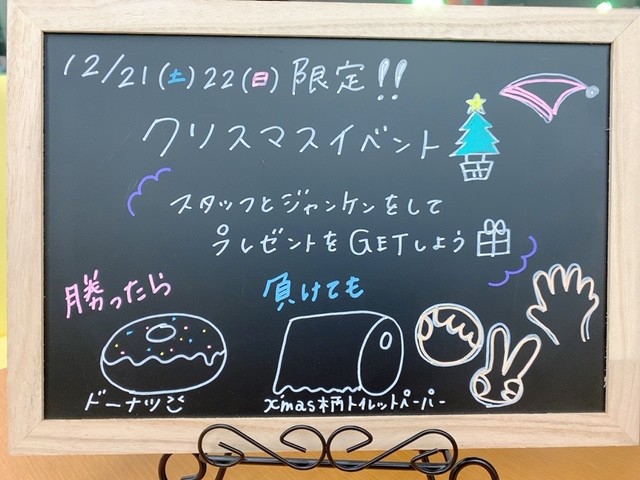 12/21(土)22(日)限定!!
クリスマスイベント
スタッフとジャンケンをして
プレゼントをGETしよう
勝ったら
負けても
ドーナツ
x'mas柄トイレットペーパー